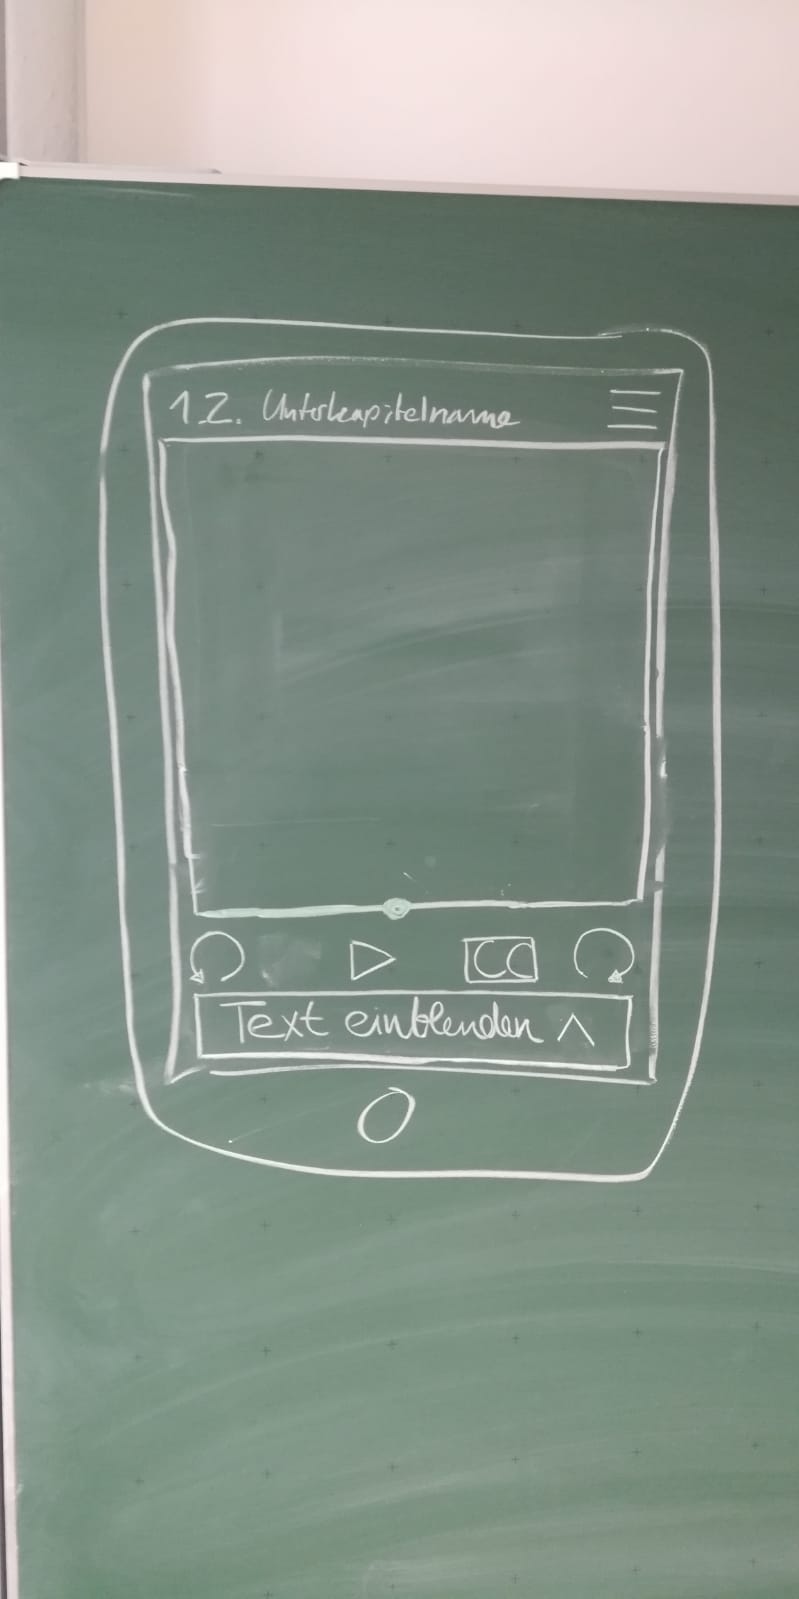 1.2. Unterkapitelname
CC
Text einblenden ^